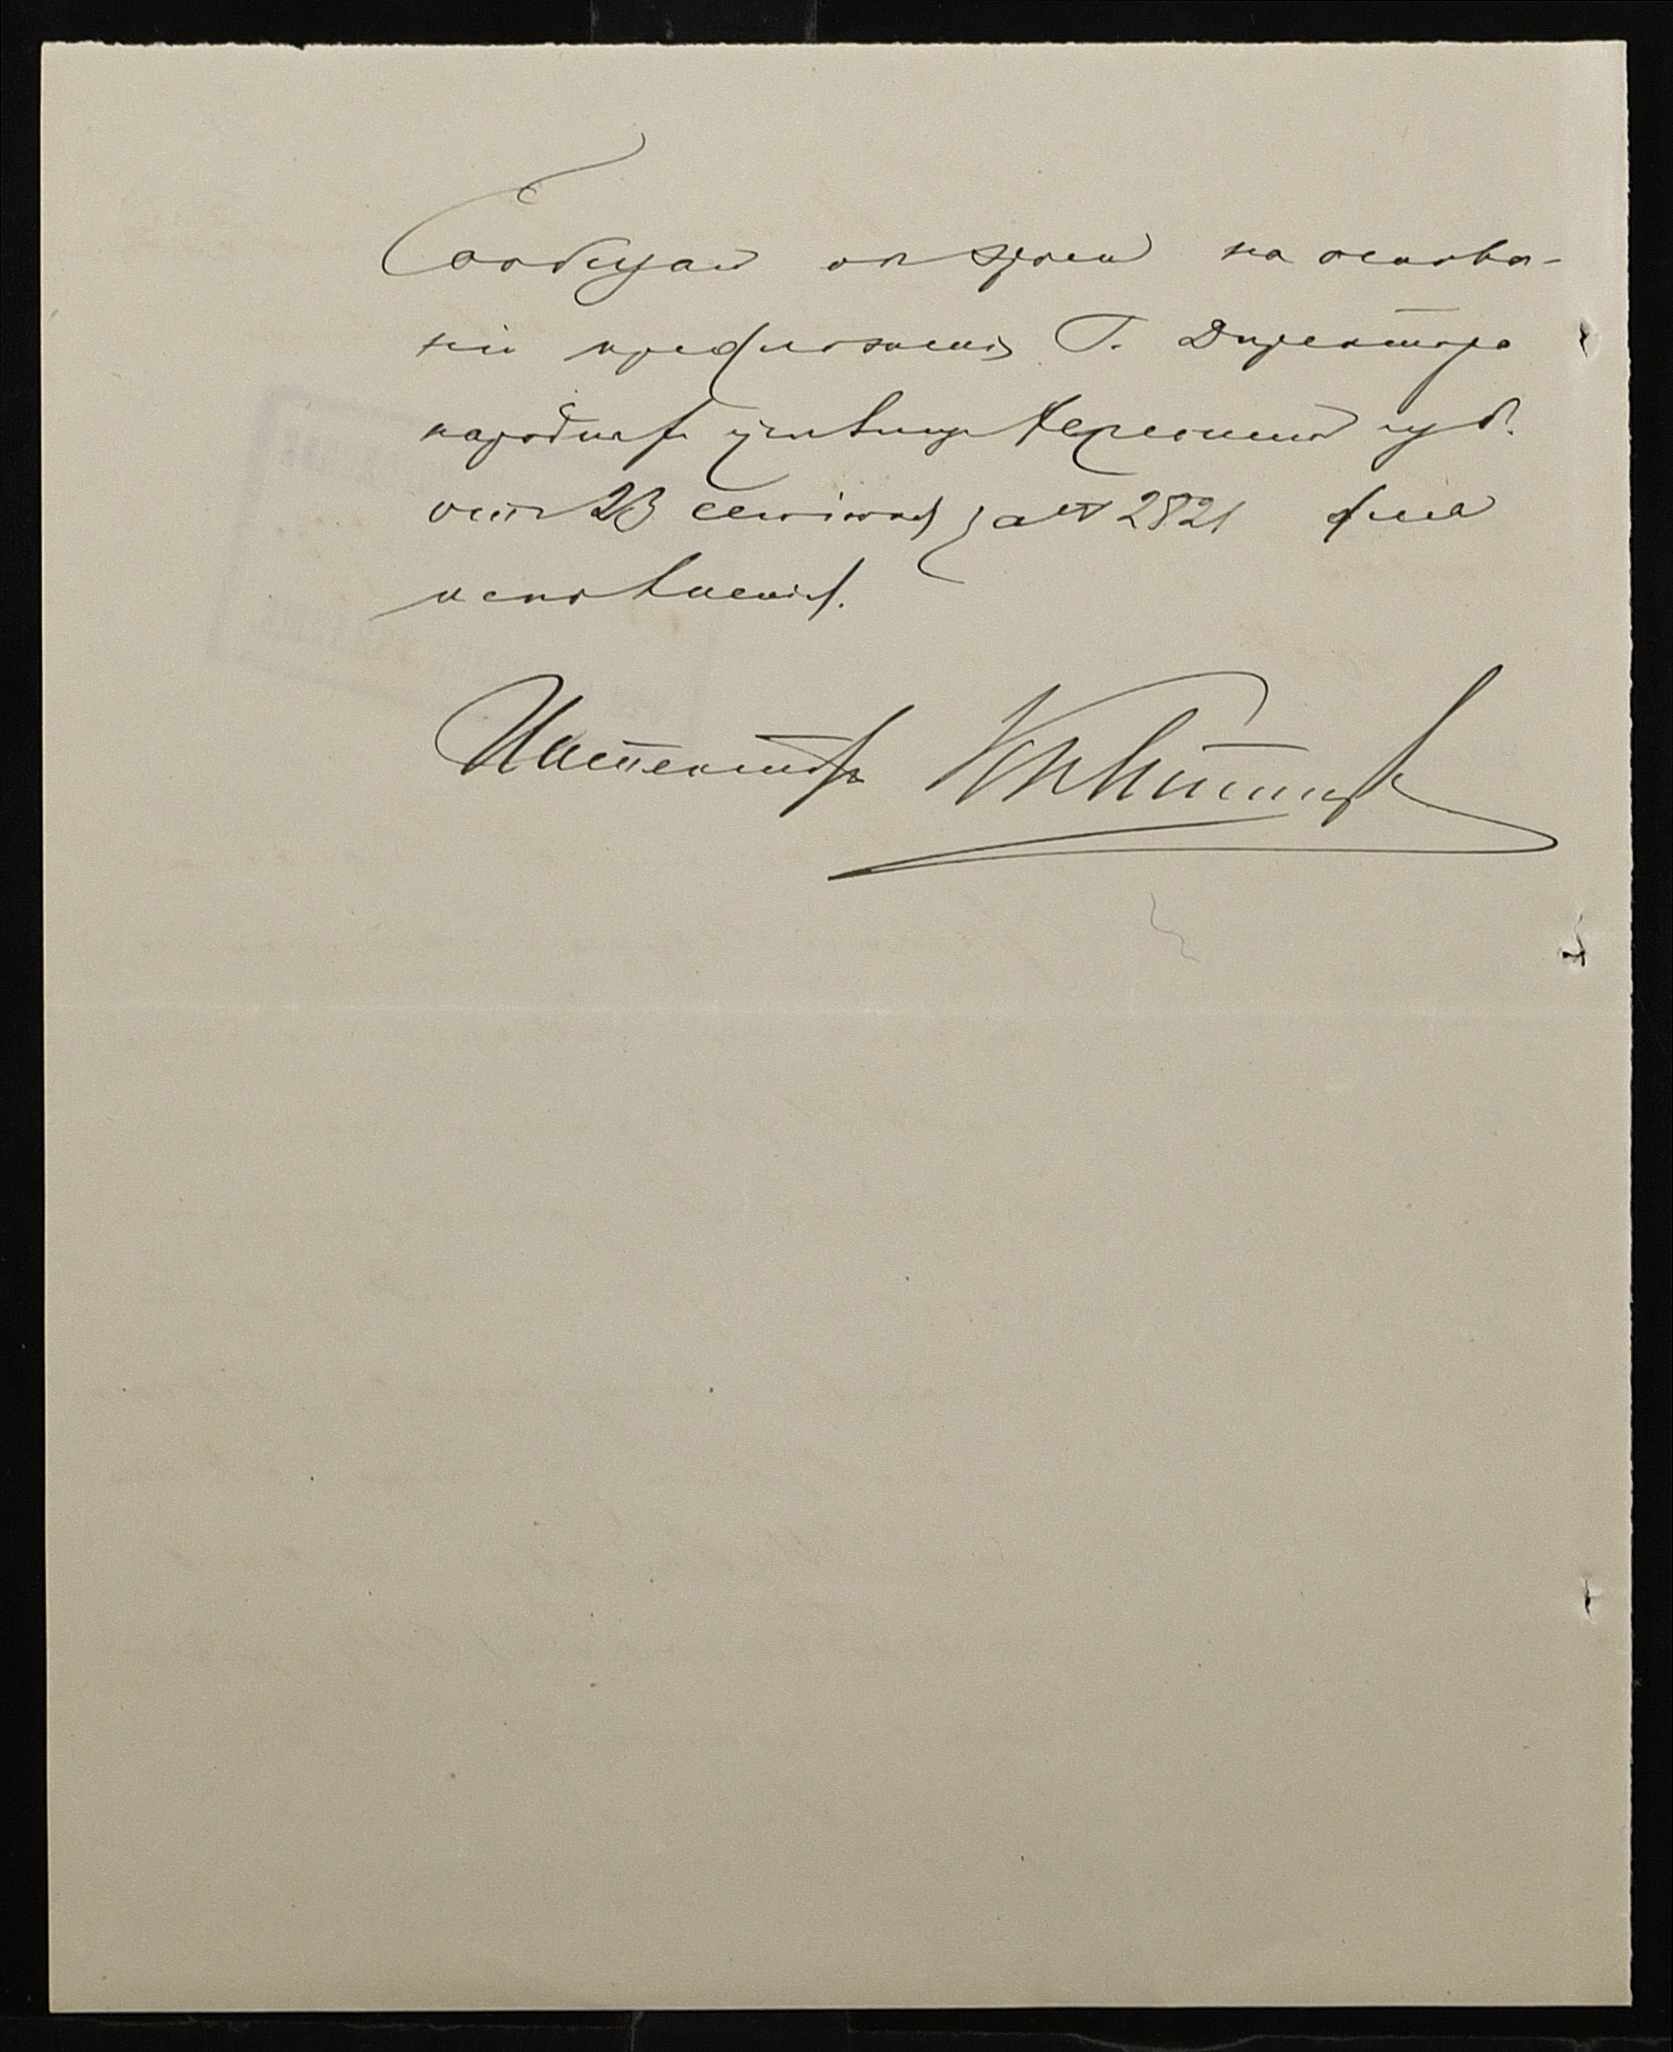 Сообщаю об этом на основа-
ніи предложенія Г. Директора
народныхъ училищъ Херсонской губ.
отъ 23 сентября за № 2821 для
исполненія.
Инспекторъ